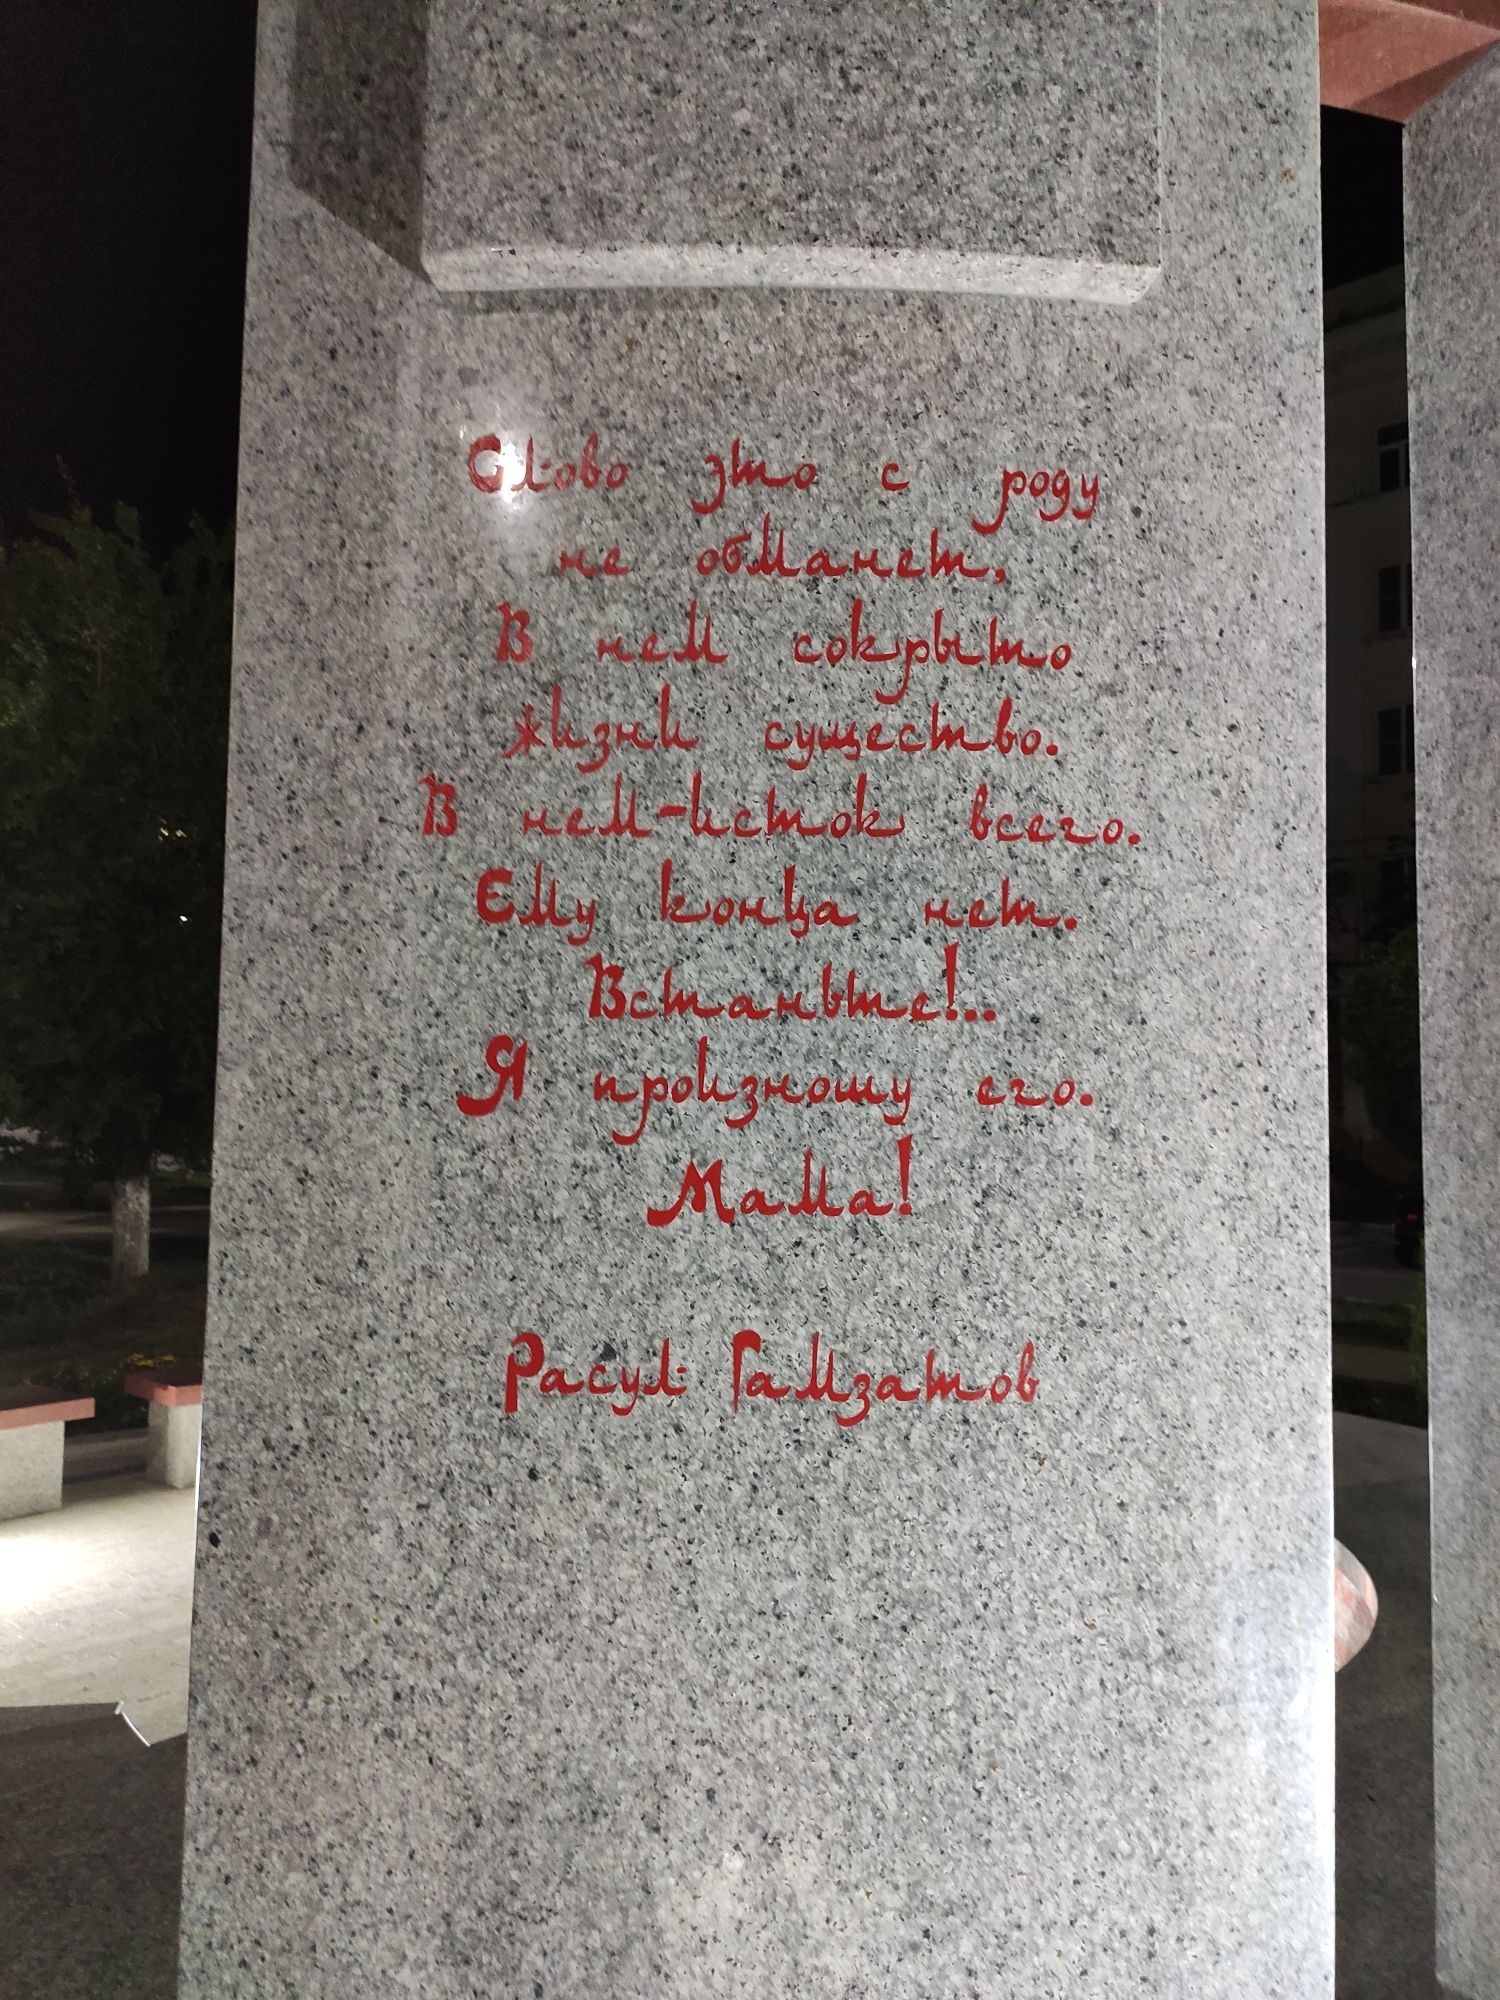 Слово это с роду
не обманет,
В нем сокрыто
жизни существо.
В нем-исток всего.
Ему конца нет.
Встаньте!..
Я произношу его.
Мама!
Расул Гамзатов